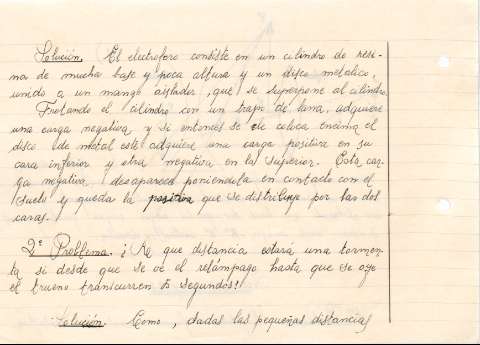 Solución. El electroforo consiste en un cilindro de resi-
na de mucha base y poca altura y un disco metalico,
unido a un mango aislador, que se superpone al cilindro.
Frotando el cilindro con un trapo de lana, adquiere
una carga negativa y si entonces se le coloca encima el
disco de metal este adquiere una carga positiva en su
cara inferior y otra negativa en la superior. Esta car-
ga negativa, desaparece poniendola en contacto con el
suelo y queda la positiva que se distribuye por las dos
caras.
2º Problema. ¿A que distancia estará una tormen-
ta si desde que se vé el relámpago hasta que se oye
el trueno transcurren segundos?
Solución. Como, dadas las pequeñas distancias